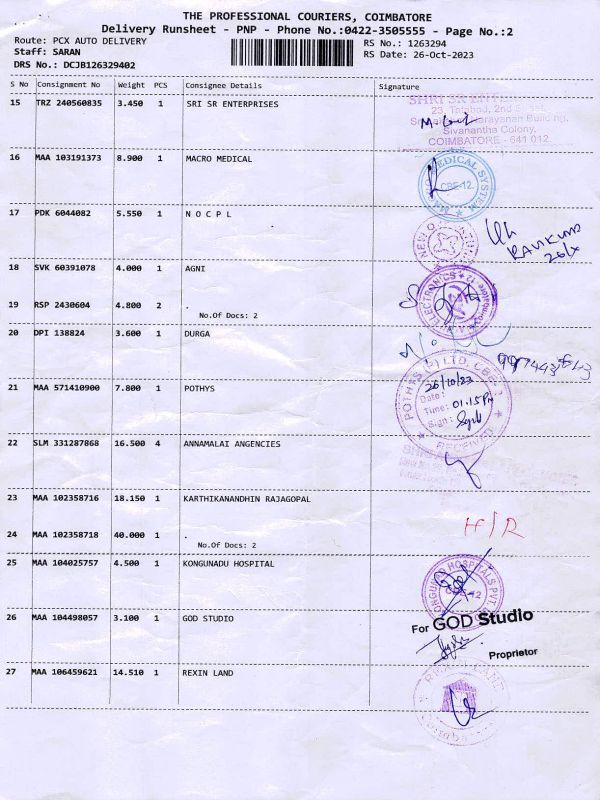 THE PROFESSIONAL COURIERS, COIMBATORE
Delivery Runsheet - PNP - Phone No.:0422-3505555 - Page No.:2
Route: PCX AUTO DELIVERY
RS No.: 1263294
Staff: SARAN
RS Date: 26-Oct-2023
DRS No.: DCJB126329402
S No Consignment No Weight PCS Consignee Details Signature
15 TRZ 240560835 3.450 1 SRI SR ENTERPRISES
23, Tatabad, 2nd
Sivanantha Colony,
COIMBATORE - 641 012.
16 MAA 103191373 8.900 1 MACRO MEDICAL
MEDICAL SYSTEM
CBE-12.
17 PDK 6044082 5.550 1 N O C P L
RAVIKUMAR
26/x
18 SVK 60391078 4.000 1 AGNI
ELECTRONICS
19 RSP 2430604 4.800 2 .
No.Of Docs: 2
20 DPI 138824 3.600 1 DURGA
21 MAA 571410900 7.800 1 POTHYS
POTHYS (P) LTD, CBE
Date: 26/10/23
Time: 01.15PM
Sign:
RECEIVED
22 SLM 331287868 16.500 4 ANNAMALAI ANGENCIES
23 MAA 102358716 18.150 1 KARTHIKANANDHIN RAJAGOPAL
H/R
24 MAA 102358718 40.000 1 .
No.Of Docs: 2
25 MAA 104025757 4.500 1 KONGUNADU HOSPITAL
KONGUNAD HOSPITALS PVT
26 MAA 104498057 3.100 1 GOD STUDIO
For GOD Studio
Proprietor
27 MAA 106459621 14.510 1 REXIN LAND